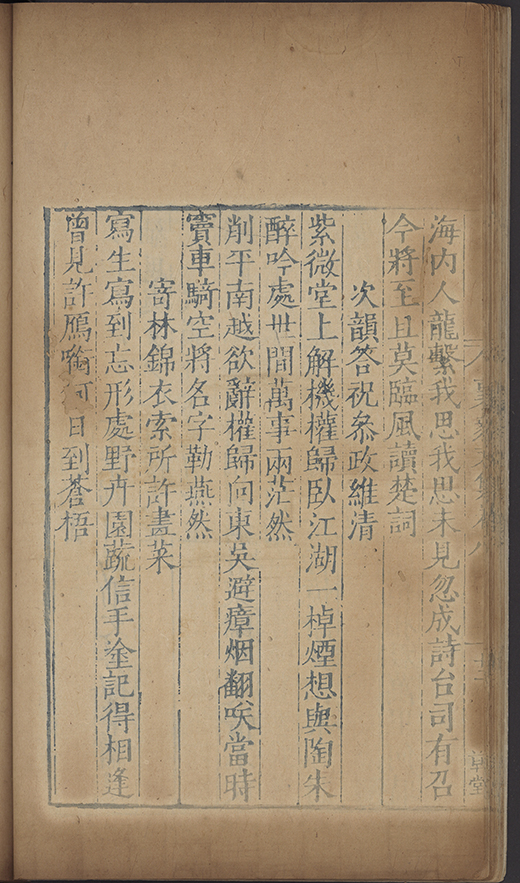 海内人龍繫我思我思未見忽成詩台司有召
今將至且莫臨風讀楚詞
次韻答祝叅政維清
紫微堂上解機權歸臥江湖一棹煙想與陶朱
醉吟處世間萬事兩茫然
削平南越欲辭權歸向東吳避瘴烟翻唉當時
竇車騎空將名字勒燕然
寄林錦衣索所許畫菜
寫生寫到忘形處野卉園蔬信手塗記得相逢
曾見許鴈啣何日到蒼梧